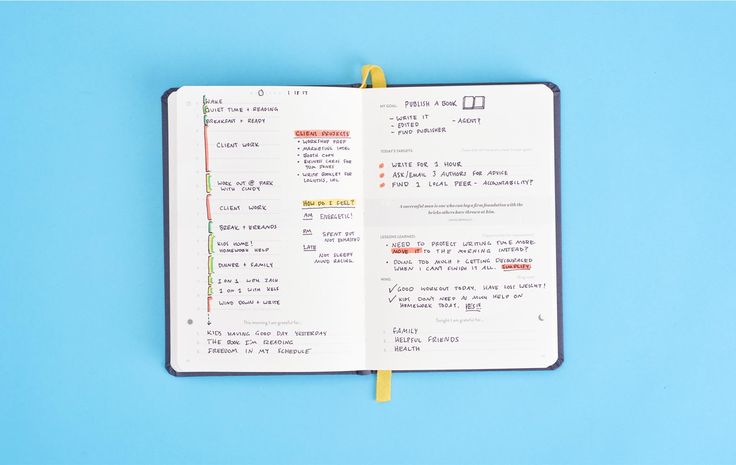 1 18 17
WAKE
QUIET TIME + READING
BREAKFAST + READY
CLIENT WORK
WORK OUT @ PARK
WITH CINDY
CLIENT WORK
BREAK + ERRANDS
KIDS HOME!
HOMEWORK HELP
DINNER + FAMILY
1 ON 1 WITH ZACH
1 ON 1 WITH KELS
WIND DOWN + WRITE
CLIENT PROJECTS
• WORKSHOP PREP
• MARKETING
• BOOTH COPY
• BUSINESS CARDS FOR
TOM JONES
• WRITE BOOKLET FOR
HOW DO I FEEL?
AM ENERGETIC!
PM SPENT BUT
NOT EXHAUSTED
LATE NOT SLEEPY
MIND RACING
This morning I am grateful for...
1. KIDS HAVING GOOD DAY YESTERDAY
2. THE BOOK I'M READING
3. FREEDOM IN MY SCHEDULE
MY GOAL: PUBLISH A BOOK
- WRITE IT
- EDITED
- FIND PUBLISHER
- AGENT?
TODAY'S TARGETS
WRITE FOR 1 HOUR
ASK/EMAIL 3 AUTHORS FOR ADVICE
FIND 1 LOCAL PEER - ACCOUNTABILITY?
A successful man is one who can lay a firm foundation with the
bricks others have thrown at him.
LESSONS LEARNED
• NEED TO PROTECT WRITING TIME MORE
MOVE IT TO THE MORNING INSTEAD?
• DOING TOO MUCH + GETTING DISCOURAGED
WHEN I CAN'T FINISH IT ALL. SIMPLIFY.
WINS
✓ GOOD WORKOUT TODAY. HAVE LOST WEIGHT!
✓ KIDS DON'T NEED AS MUCH HELP ON
HOMEWORK TODAY.
Tonight I am grateful for...
1. FAMILY
2. HELPFUL FRIENDS
3. HEALTH